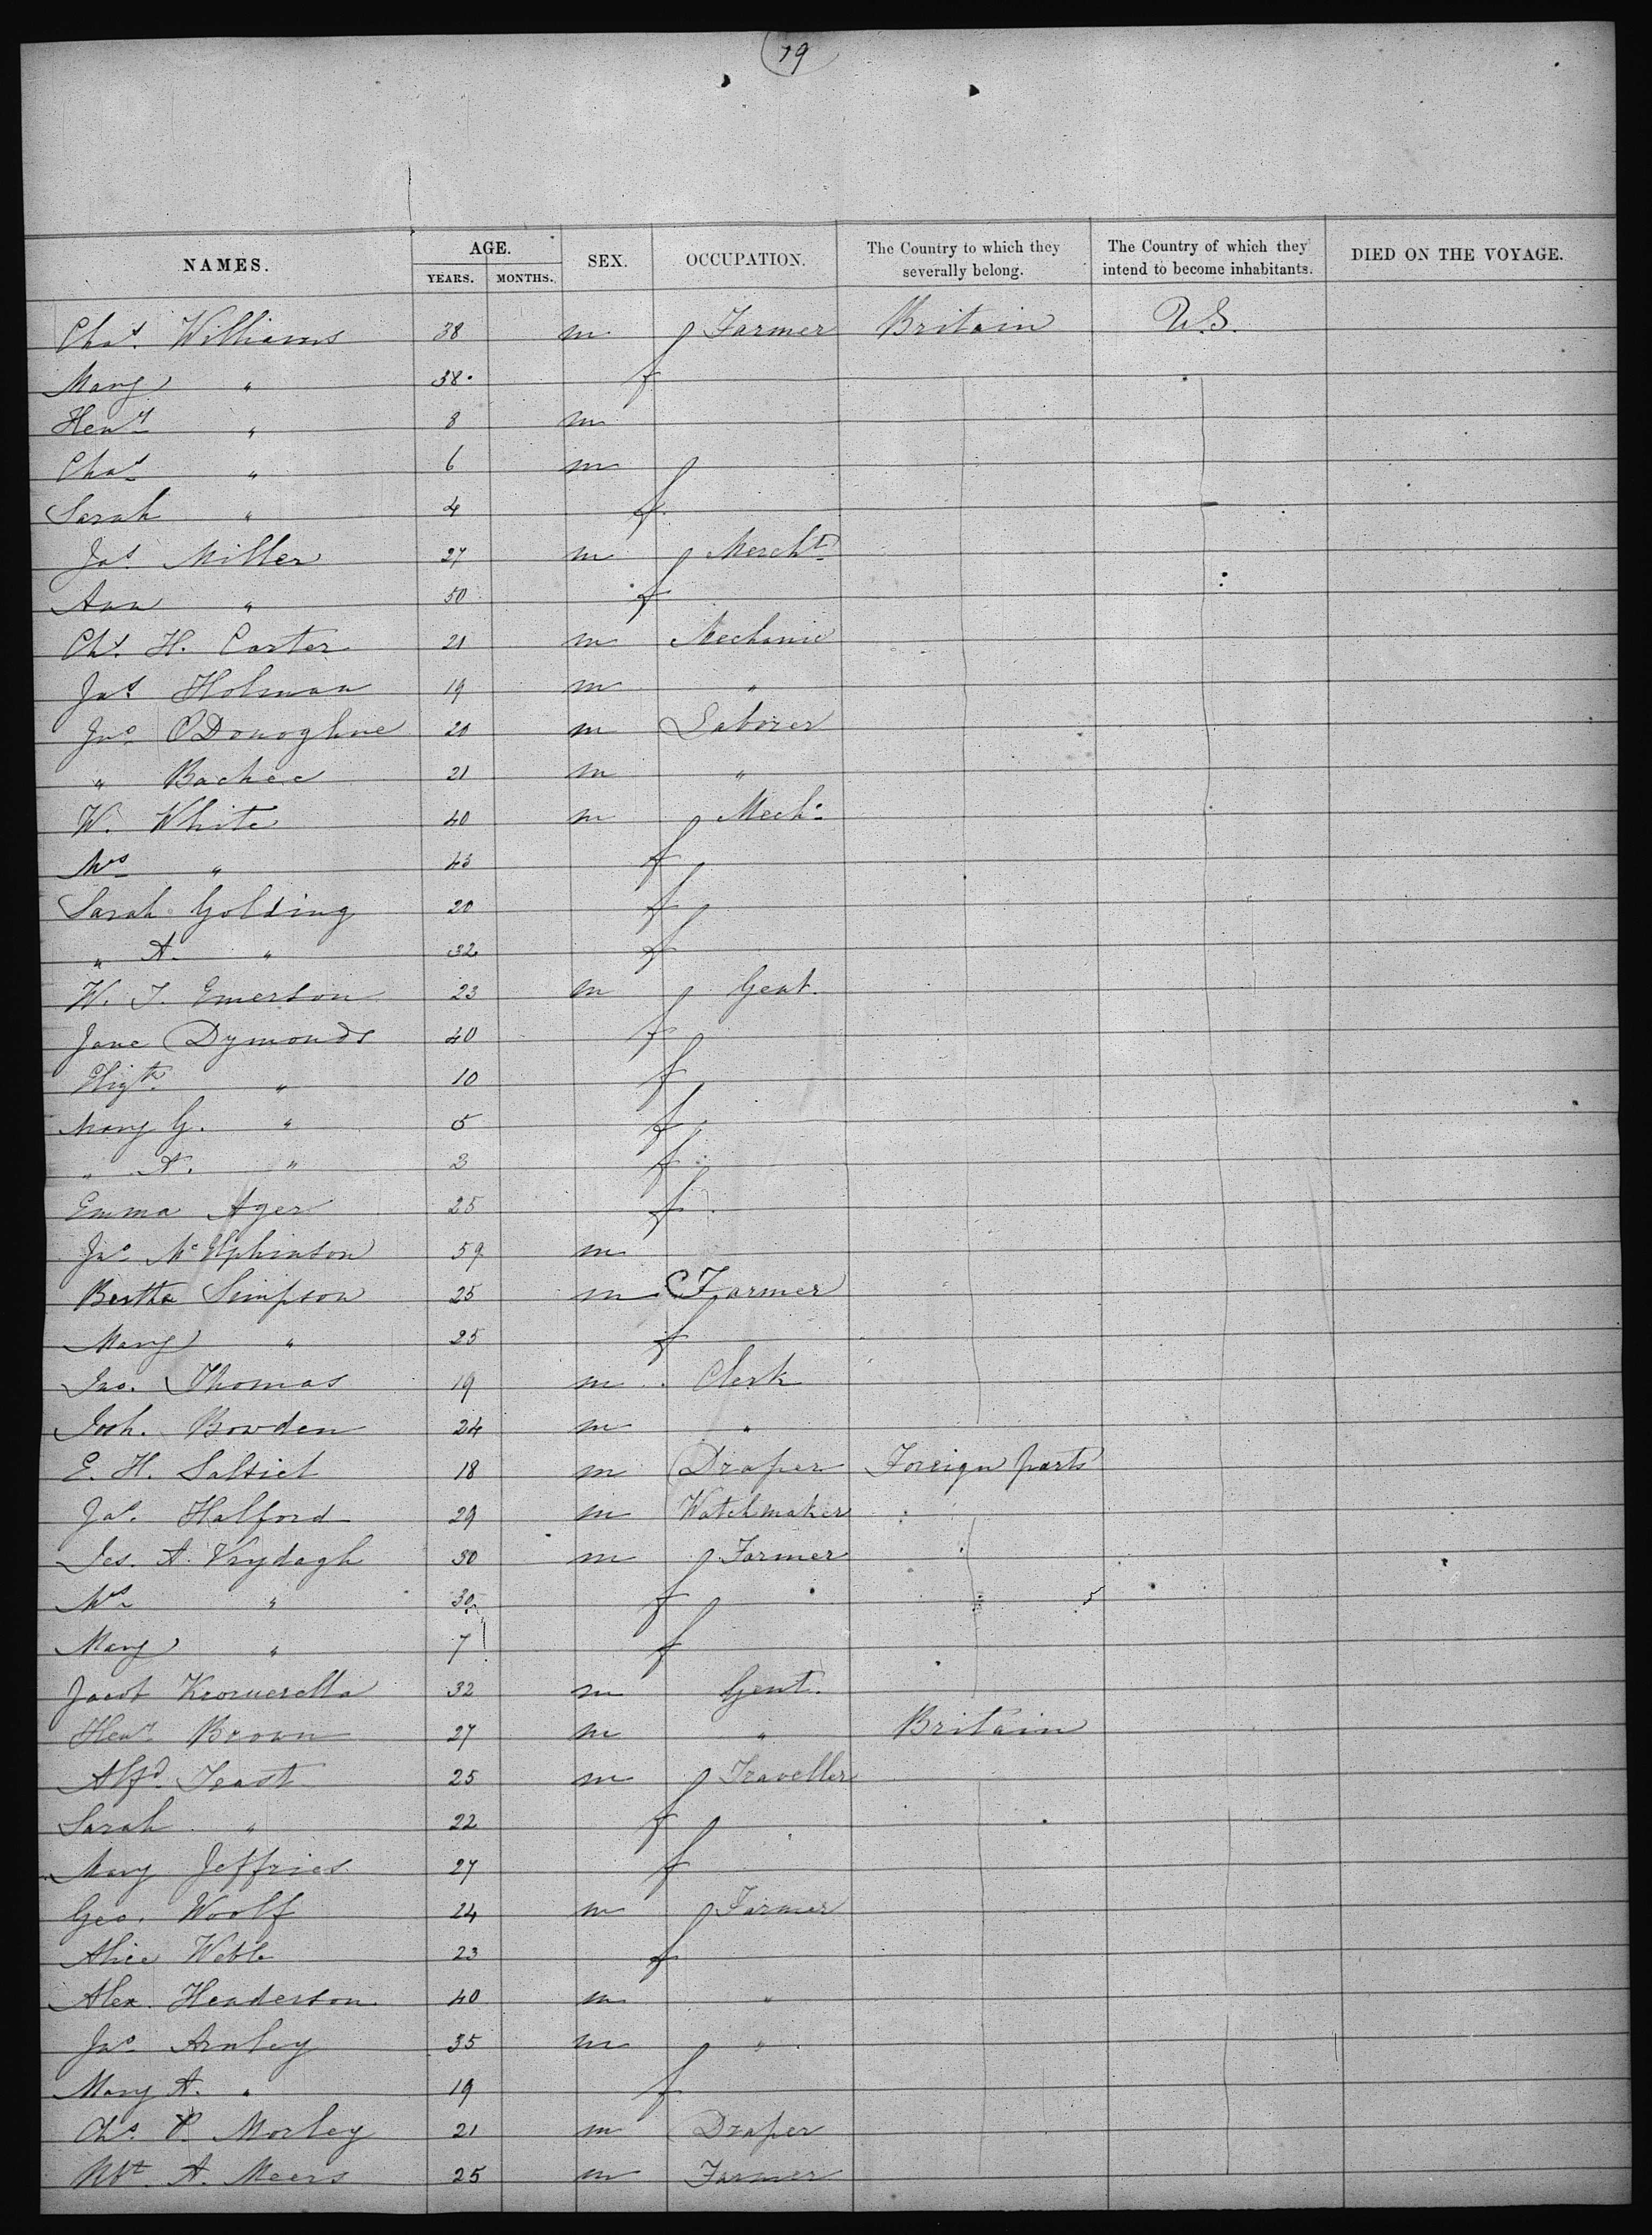 19
NAMES. AGE. SEX. OCCUPATION. The Country to which they severally belong. The Country of which they intend to become inhabitants. DIED ON THE VOYAGE.
YEARS. MONTHS.
Chas. Williams 38 m Farmer Britain U.S.
Mary " 38 f
Heny " 8 m
Chas " 6 m
Sarah " 4 f
Jas Miller 27 m Mercht
Ann " 50 f
Chs. H. Carter 21 m Mechanic
Jas Holman 19 m "
Jno O'Donoghue 20 m Laborer
" Bachee 21 m "
W. White 40 m Mech.
Mrs " 43 f
Sarah Golding 20 f
" A. " 32 f
W. J. Emerson 23 m Gent.
Jane Dymonds 40 f
" 10 f
Mary G. " 5 f
" A. " 3 f
Emma Ager 25 f
Jno 59 m
Bertha Simpson 25 m Farmer
Mary " 25 f
Jno. Thomas 19 m Clerk
Josh. Bowden 24 m "
E. H. Saltiel 18 m Draper Foreign parts
Jas. Halford 29 m Watchmaker
Jes. A. Vrydagh 30 m Farmer
Mrs " 30 f
Mary " 7 f
Jacob 32 m Gent.
Heny Brown 27 m " Britain
Alfd Teast 25 m Traveller
Sarah " 22 f
Mary Jeffries 27 f
Geo. Woolf 24 m Farmer
Alice Webb 23 f
Alex. Henderson 40 m "
Jno Arnley 35 m "
Mary A. " 19 f
Chs. P. Morley 21 m Draper
Rbt. A. Meers 25 m Farmer